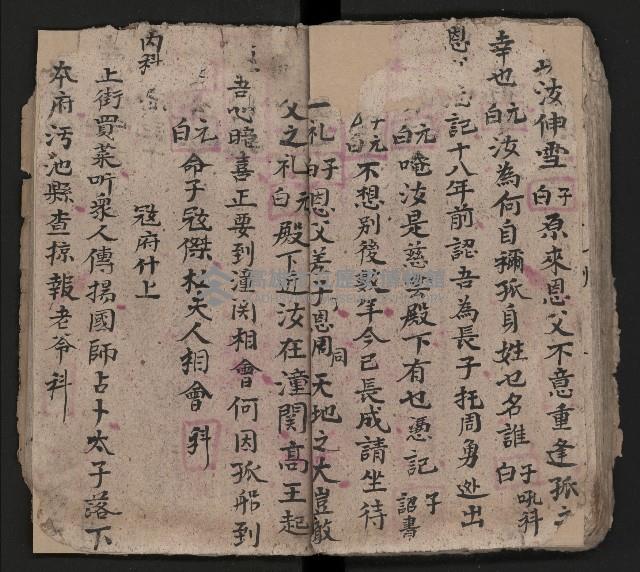 汝伸雪 子白 原來恩父不意重逢孤之
幸也 元白 汝為何自稱孤身姓乜名誰 子白 吼科
恩 記十八年前認吾為長子托周勇迯出
元白 唵汝是慈雲殿下有乜憑記 子 詔書
子元白 不想別後数年今已長成請坐待
一礼 子白 恩父差子恩同天地之大豈敢
父之礼 元白 殿下近汝在潼関高王起
吾心暗喜正要到潼関相會何因孤那到
元白 命子冦傑杜夫人相會 科
冦府什上
內科
上街買菜听眾人傳揚國師占卜太子落下
本府汚池縣查掠報老爷科
高雄市立歷史博物館